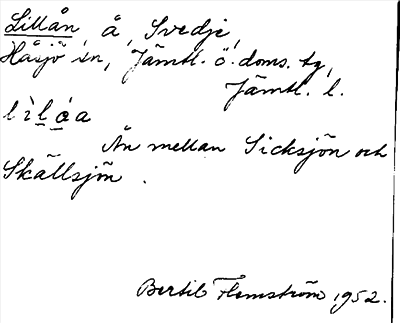 Lillån, å, Svedje,
Håsjö sn, Jämtl. ö. doms. tg,
Jämtl. l.
lìl̲á̲a
Ån mellan Sicksjön och
Skällsjön.
Bertil Flemström 1952.